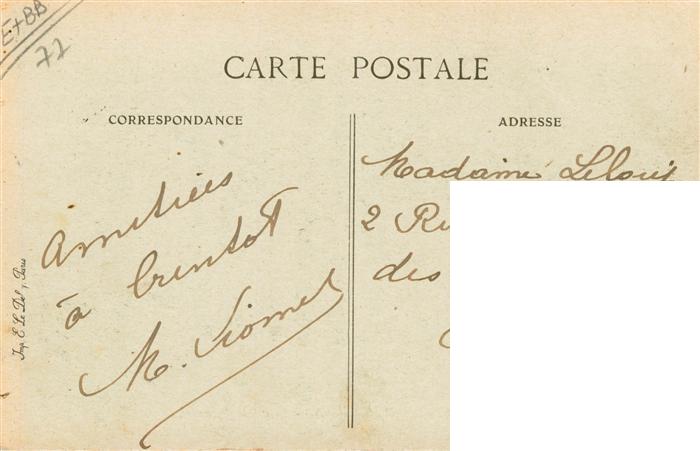 E+BB
72
CARTE POSTALE
CORRESPONDANCE
Amitiées
à bientôt
M.
Imp. E. Le Deley, Paris
ADRESSE
Madame
2
des